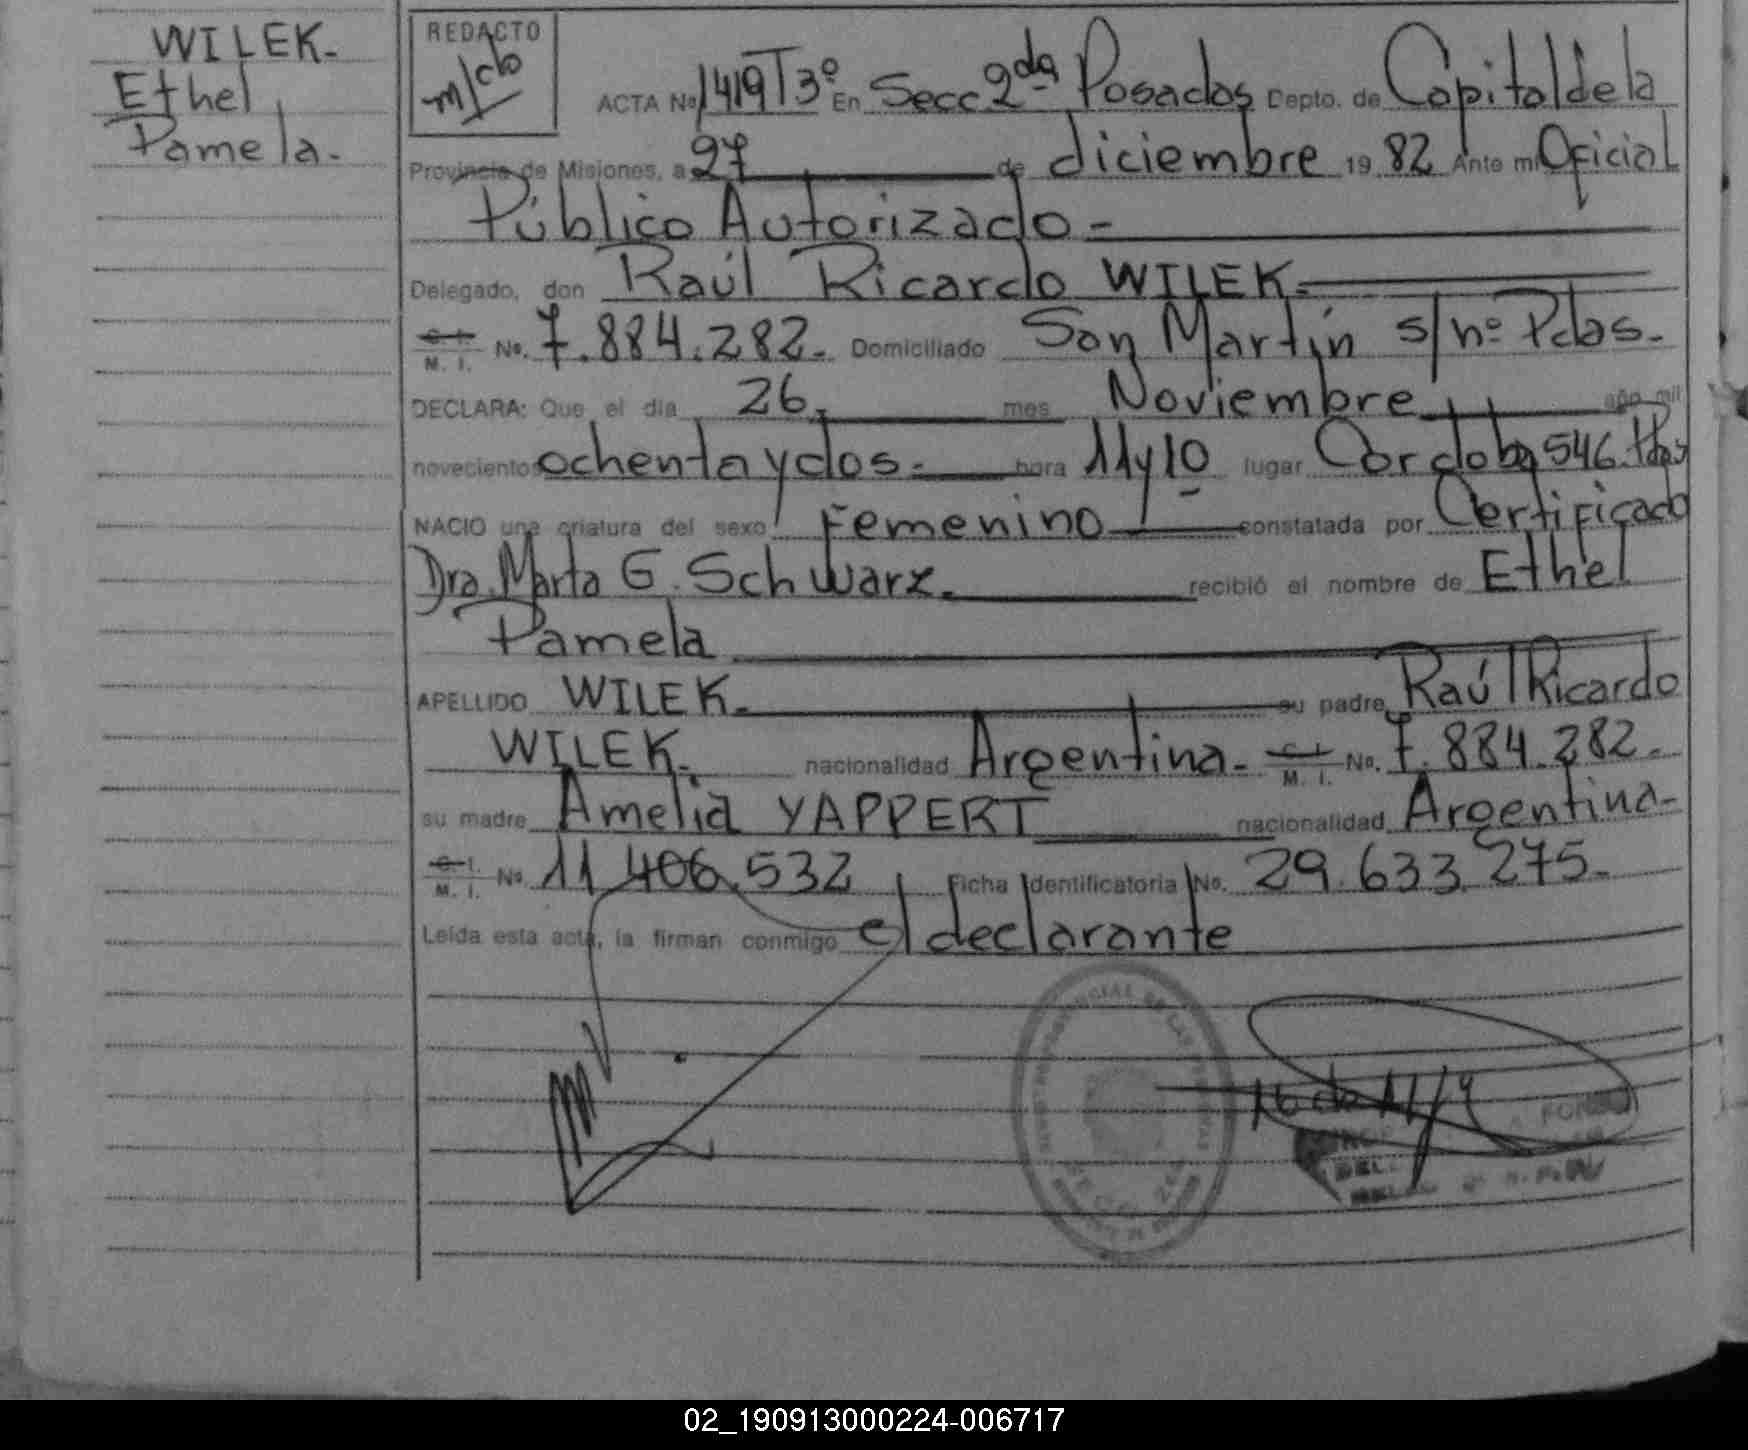 WILEK.
Ethel
Pamela.
REDACTO
ACTA No 1419 T3º En Secc 2da Posadas Depto. de Capital de la
Provincia de Misiones, a 27 de diciembre 19 82 Ante mi Oficial
Público Autorizado -
Delegado, don Raúl Ricardo WILEK.
C. I. M. I. No. 7.884.282. Domiciliado San Martín s/nº Pdas.
DECLARA: Que el día 26 mes Noviembre año mil
novecientos ochenta y dos. hora 11 y 10 lugar Cordoba 546. Pdas
NACIO una criatura del sexo Femenino constatada por Certificado
Dra. Marta G. Schwarz. recibió el nombre de Ethel
Pamela
APELLIDO WILEK. su padre Raúl Ricardo
WILEK. nacionalidad Argentina. C. I. M. I. No. 7.884.282.
su madre Amelia YAPPERT nacionalidad Argentina-
C. I. M. I. No. 11.406.532 Ficha Identificatoria No. 29.633.275.
Leída esta acta, la firman conmigo el declarante
02_190913000224-006717